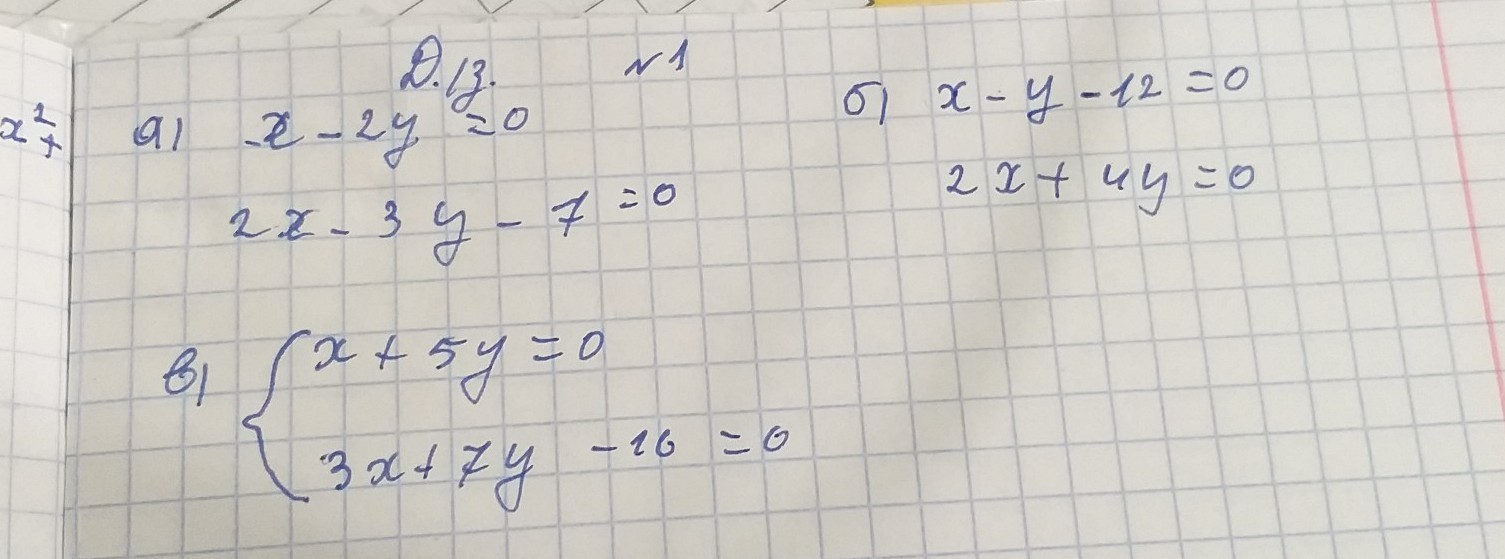 Д.з. №1
а) x - 2y = 0
2x - 3y - 7 = 0
б) x - y - 12 = 0
2x + 4y = 0
в) { x + 5y = 0
3x + 7y - 16 = 0
x² +